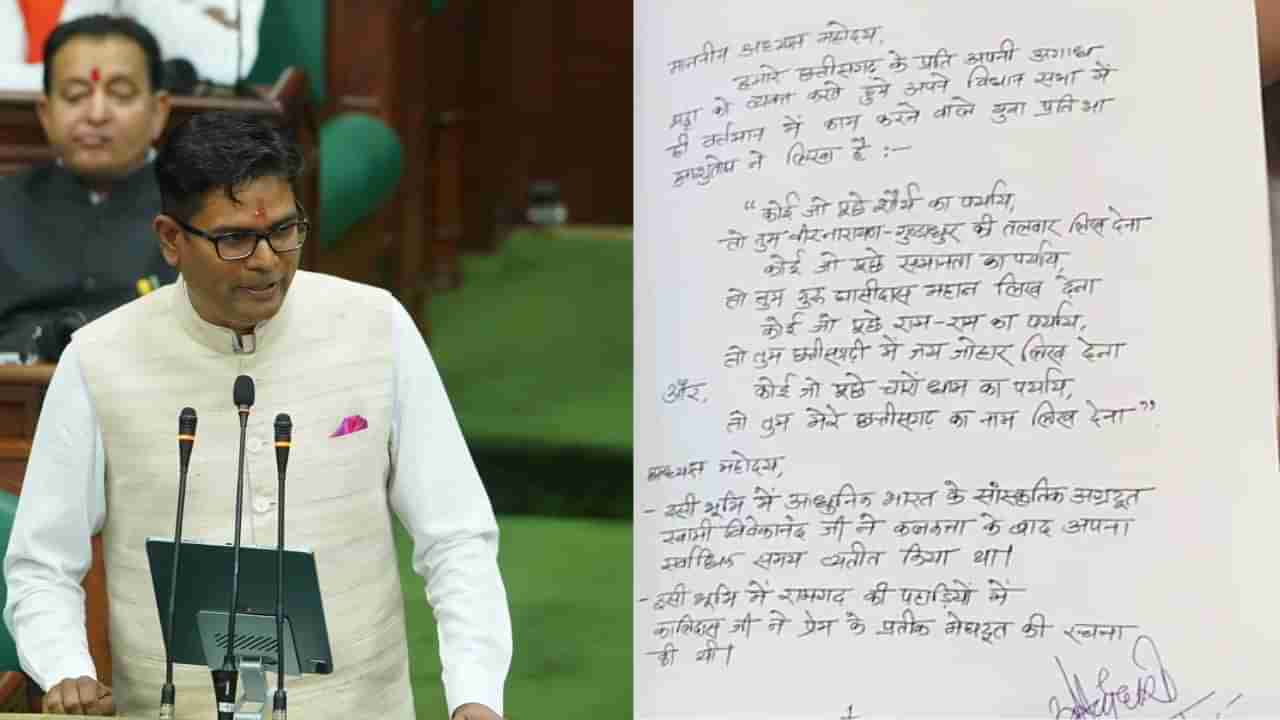 माननीय अध्यक्ष महोदय,
हमारे छत्तीसगढ़ के प्रति अपनी अगाध
श्रद्धा को व्यक्त करते हुये अपने विधान सभा में
ही वर्तमान में काम करने वाले युवा प्रतिभा
आशुतोष ने लिखा है :-
“कोई जो पूछे शौर्य का पर्याय,
तो तुम वीरनारायण-गुण्डाधुर की तलवार लिख देना
कोई जो पूछे समानता का पर्याय,
तो तुम गुरु घासीदास महान लिख देना
कोई जो पूछे राम-राम का पर्याय,
तो तुम छत्तीसगढ़ी में जय जोहार लिख देना
और, कोई जो पूछे चारों धाम का पर्याय,
तो तुम मेरे छत्तीसगढ़ का नाम लिख देना”
अध्यक्ष महोदय,
- इसी भूमि में आधुनिक भारत के सांस्कृतिक अग्रदूत
स्वामी विवेकानंद जी ने कलकत्ता के बाद अपना
सर्वाधिक समय व्यतीत किया था।
- इसी भूमि में रामगढ़ की पहाड़ियों में
कालिदास जी ने प्रेम के प्रतीक मेघदूत की रचना
की थी।